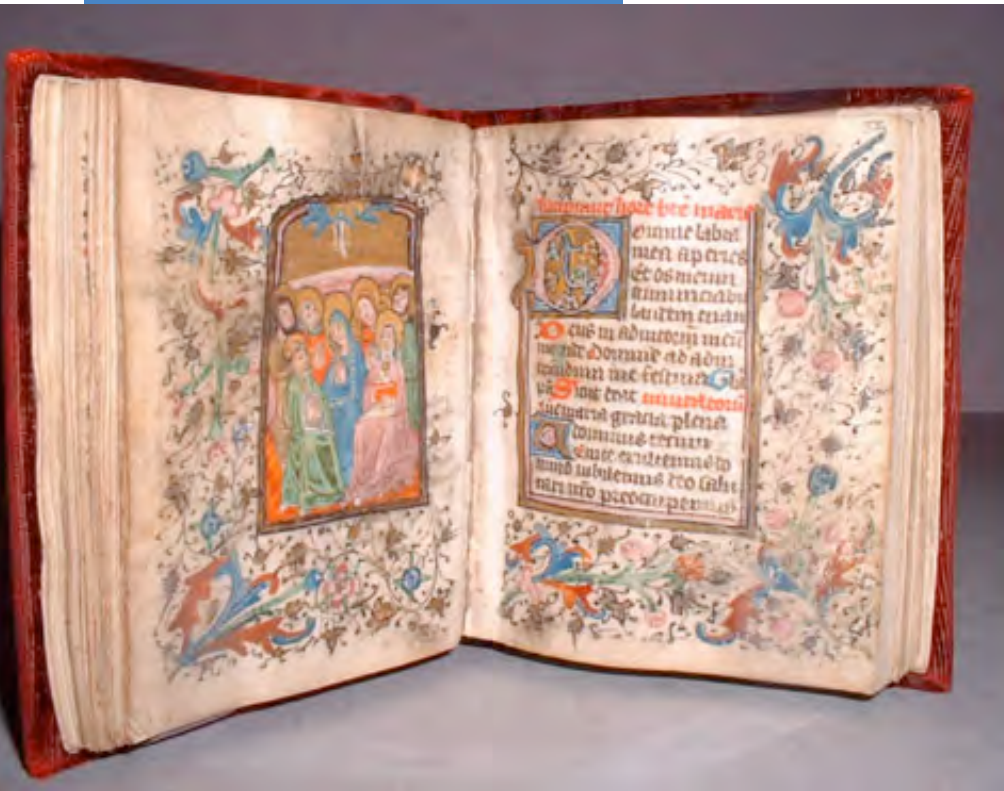 hore bte marie
Domine labia
mea aperies
Et os meum
laudem tuam
Deus in adiutoriu meu
intende Domine ad adiu
me festina Gl
Sicut erat
maria gracia plena
dominus tecum
exultemus do
mino iubilemus deo salu
tari nro preoccupemus